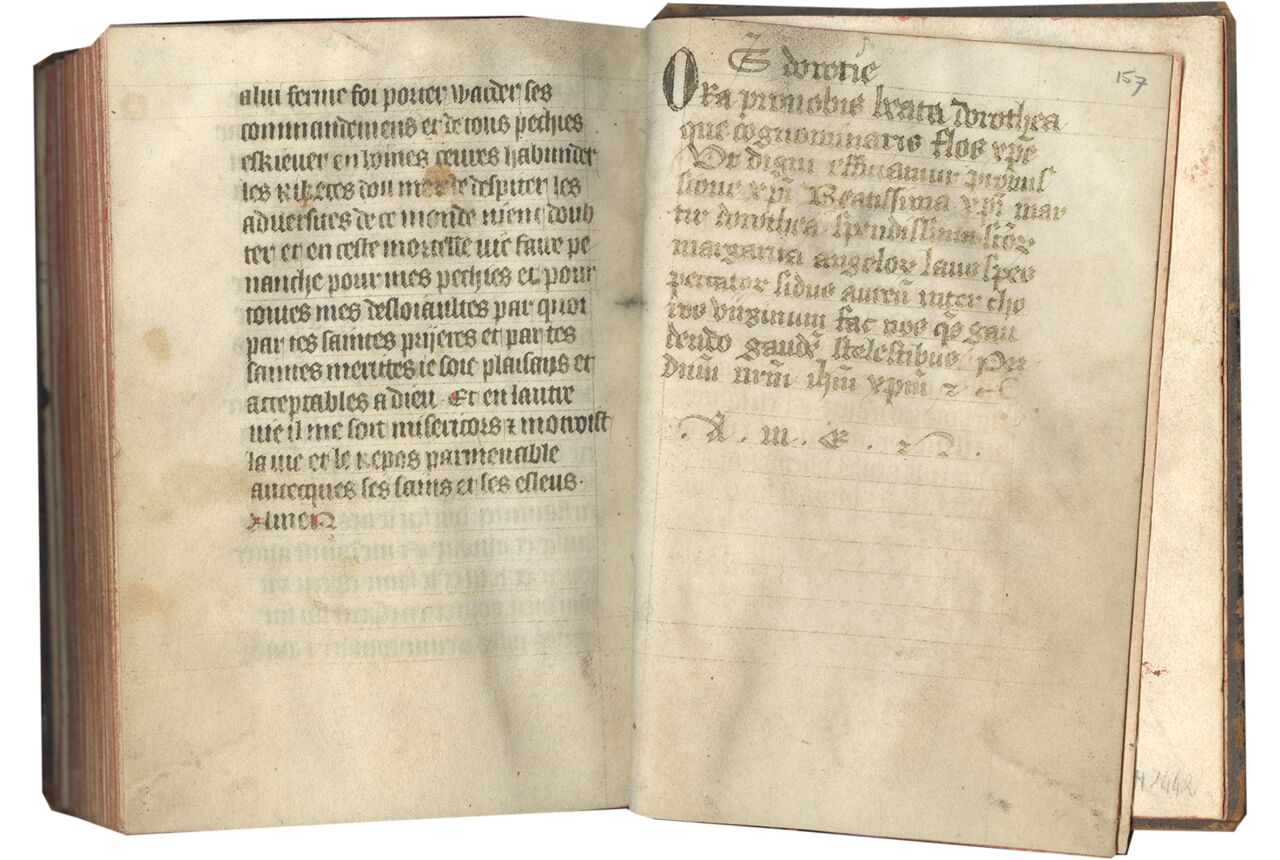 a lui ferme foi porter warder ses
commandemens et de tous pechies
eskiever en boines œuvres habunder
les rikeces dou monde despiter les
adversites de ce monde nient doub
ter et en ceste mortelle vie faire pe
nanche pour mes pechies et pour
toutes mes desloiaultes par quoi
par tes saintes prijeres et par tes
saintes merites ie soie plaisans et
acceptables a dieu. Et en lautre
vie il me soit misericors ⁊ motroist
la vie et le repos parmenable
avecques ses sains et ses esleus.
Amen
S dorotie
157
Ora pro nobis beata dorothea
que cognominaris flos xpē
Ut digni efficiamur promis
sione xp̄i Beatissima xp̄i mar
tir dorothea spendissima
margarita angeloꝝ laus spes
peccatoꝝ sidus aureū inter cho
ros virginum fac nos q̄s gau
dendo gaudē stelestibus Per
dnūm nrm̄ ihm̄ xpm̄ ⁊ c
. A . m . e . n .
1442